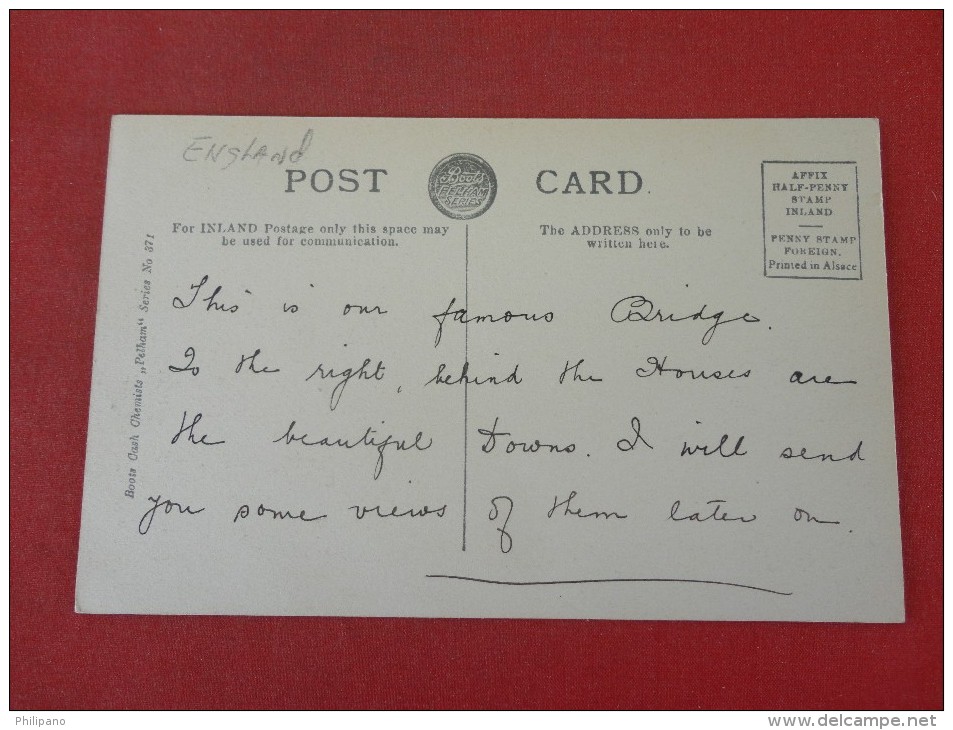 ENGLAND
POST CARD.
Boots
PELHAM
SERIES
AFFIX
HALF-PENNY
STAMP
INLAND
PENNY STAMP
FOREIGN.
Printed in Alsace
For INLAND Postage only this space may
be used for communication.
The ADDRESS only to be
written here.
Boots Cash Chemists „Pelham“ Series No 371
This is our famous Bridge.
To the right, behind the Houses are
the beautiful Downs. I will send
you some views of them later on.
Philipano
www.delcampe.net